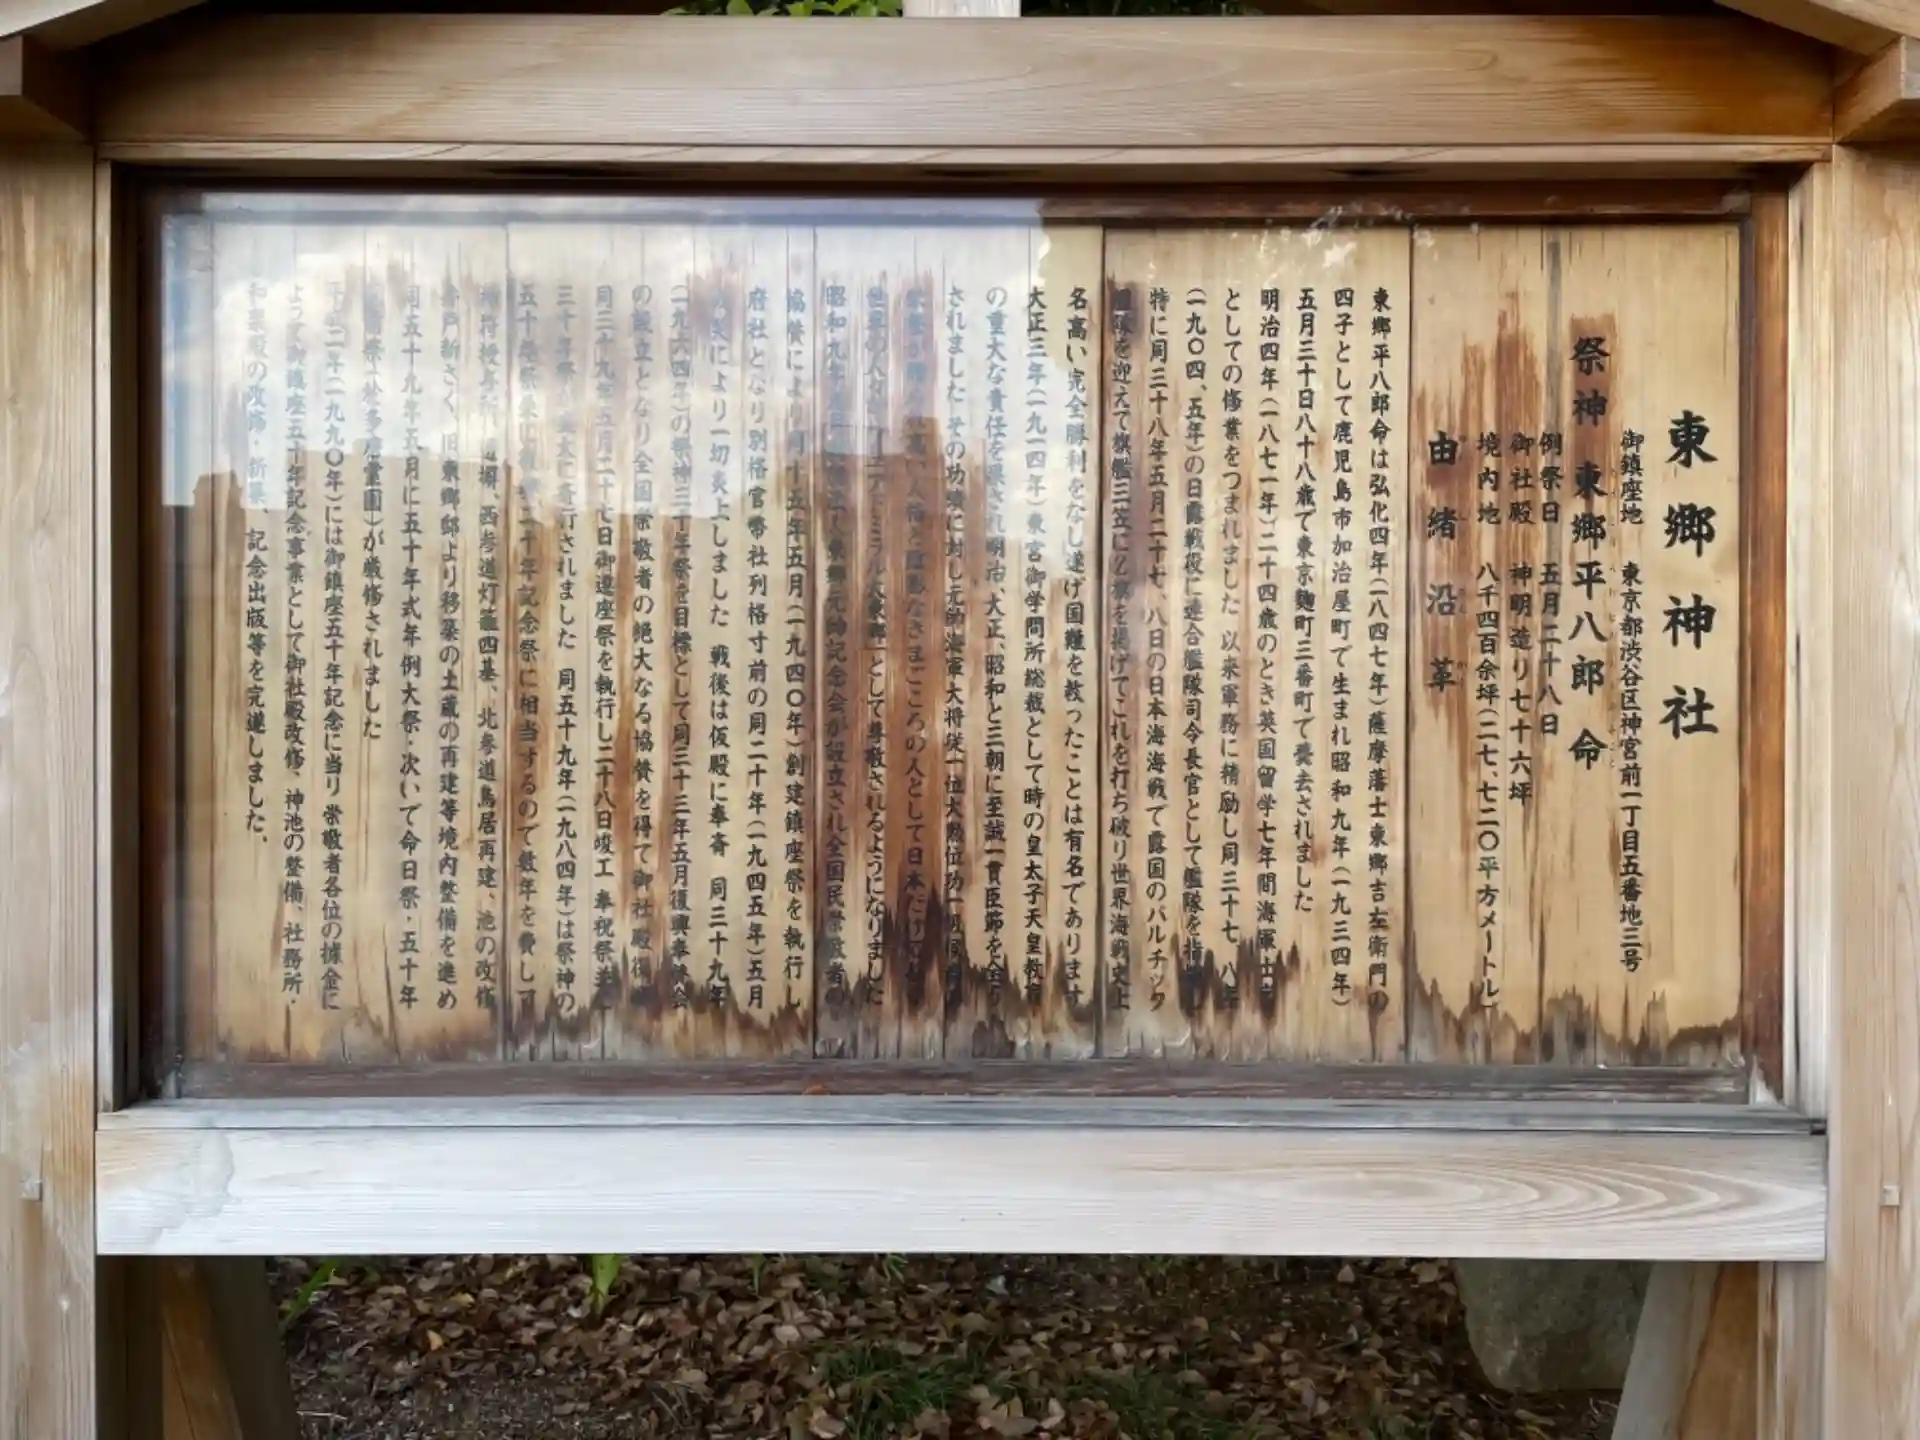 東郷神社
御鎮座地 東京都渋谷区神宮前一丁目五番地三号
祭神 東郷平八郎命
例祭日 五月二十八日
御社殿 神明造り七十六坪
境内地 八千四百余坪(二七、七二〇平方メートル)
由緒沿革
東郷平八郎命は弘化四年(一八四七年)薩摩藩士東郷吉左衛門の
四子として鹿児島市加治屋町で生まれ昭和九年(一九三四年)
五月三十日八十八歳で東京麹町三番町で薨去されました
明治四年(一八七一年)二十四歳のとき英国留学七年間海軍士官
としての修業をつまれました 以来軍務に精励し同三十七、八年
(一九〇四、五年)の日露戦役に連合艦隊司令長官として艦隊を指揮し
特に同三十八年五月二十七、八日の日本海海戦で露国のバルチック
艦隊を迎えて旗艦三笠にZ旗を掲げてこれを打ち破り世界海戦史上
名高い完全勝利をなし遂げ国難を救ったことは有名であります
大正三年(一九一四年)東宮御学問所総裁として時の皇太子天皇教育
の重大な責任を果され明治、大正、昭和と三朝に至誠一貫臣節を全う
されました その功績に対し元帥海軍大将従一位大勲位功一級侯爵の
栄誉が 高い人格と なさまごころの人として日本だけでなく
世界の人々から アドミラル東郷 として尊敬されるようになりました
昭和九年 東郷元帥記念会が設立され全国民崇敬者の
協賛により同十五年五月(一九四〇年)創建鎮座祭を執行し
府社となり別格官幣社列格寸前の同二十年(一九四五年)五月
戦災により一切炎上しました 戦後は仮殿に奉斎 同三十九年
(一九六四年)の祭神三十年祭を目標として同三十三年五月復興奉賛会
の設立となり全国崇敬者の絶大なる協賛を得て御社殿復興
同三十九年五月二十七日御遷座祭を執行し二十八日竣工 奉祝祭並に
三十年祭が盛大に斎行されました 同五十九年(一九八四年)は祭神の
五十年祭 二十年記念祭に相当するので数年を費して
神符授与所、 塀、西参道灯籠四基、北参道鳥居再建、池の改修
井戸新さく、旧東郷邸より移築の土蔵の再建等境内整備を進め
同五十九年五月に五十年式年例大祭・次いで命日祭・五十年
祭( 多磨霊園)が厳修されました
平成二年(一九九〇年)には御鎮座五十年記念に当り 崇敬者各位の據金に
よって御鎮座五十年記念事業として御社殿改修、神池の整備、社務所・
和楽殿の改修・新築、記念出版等を完遂しました。